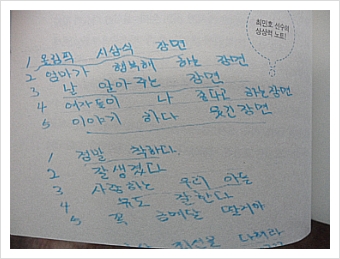 최민호 선수의
상상력 노트!
1 올림픽 시상식 장면
2 엄마가 행복해 하는 장면
3 날 안아주는 장면
4 여자들이 나 좋다고 하는장면
5 이야기 하다 웃긴장면
1 정말 착하다.
2 잘생겼다
3 사랑하는 우리 아들
4 유도 잘한다
5 꼭 금메달 딸거야